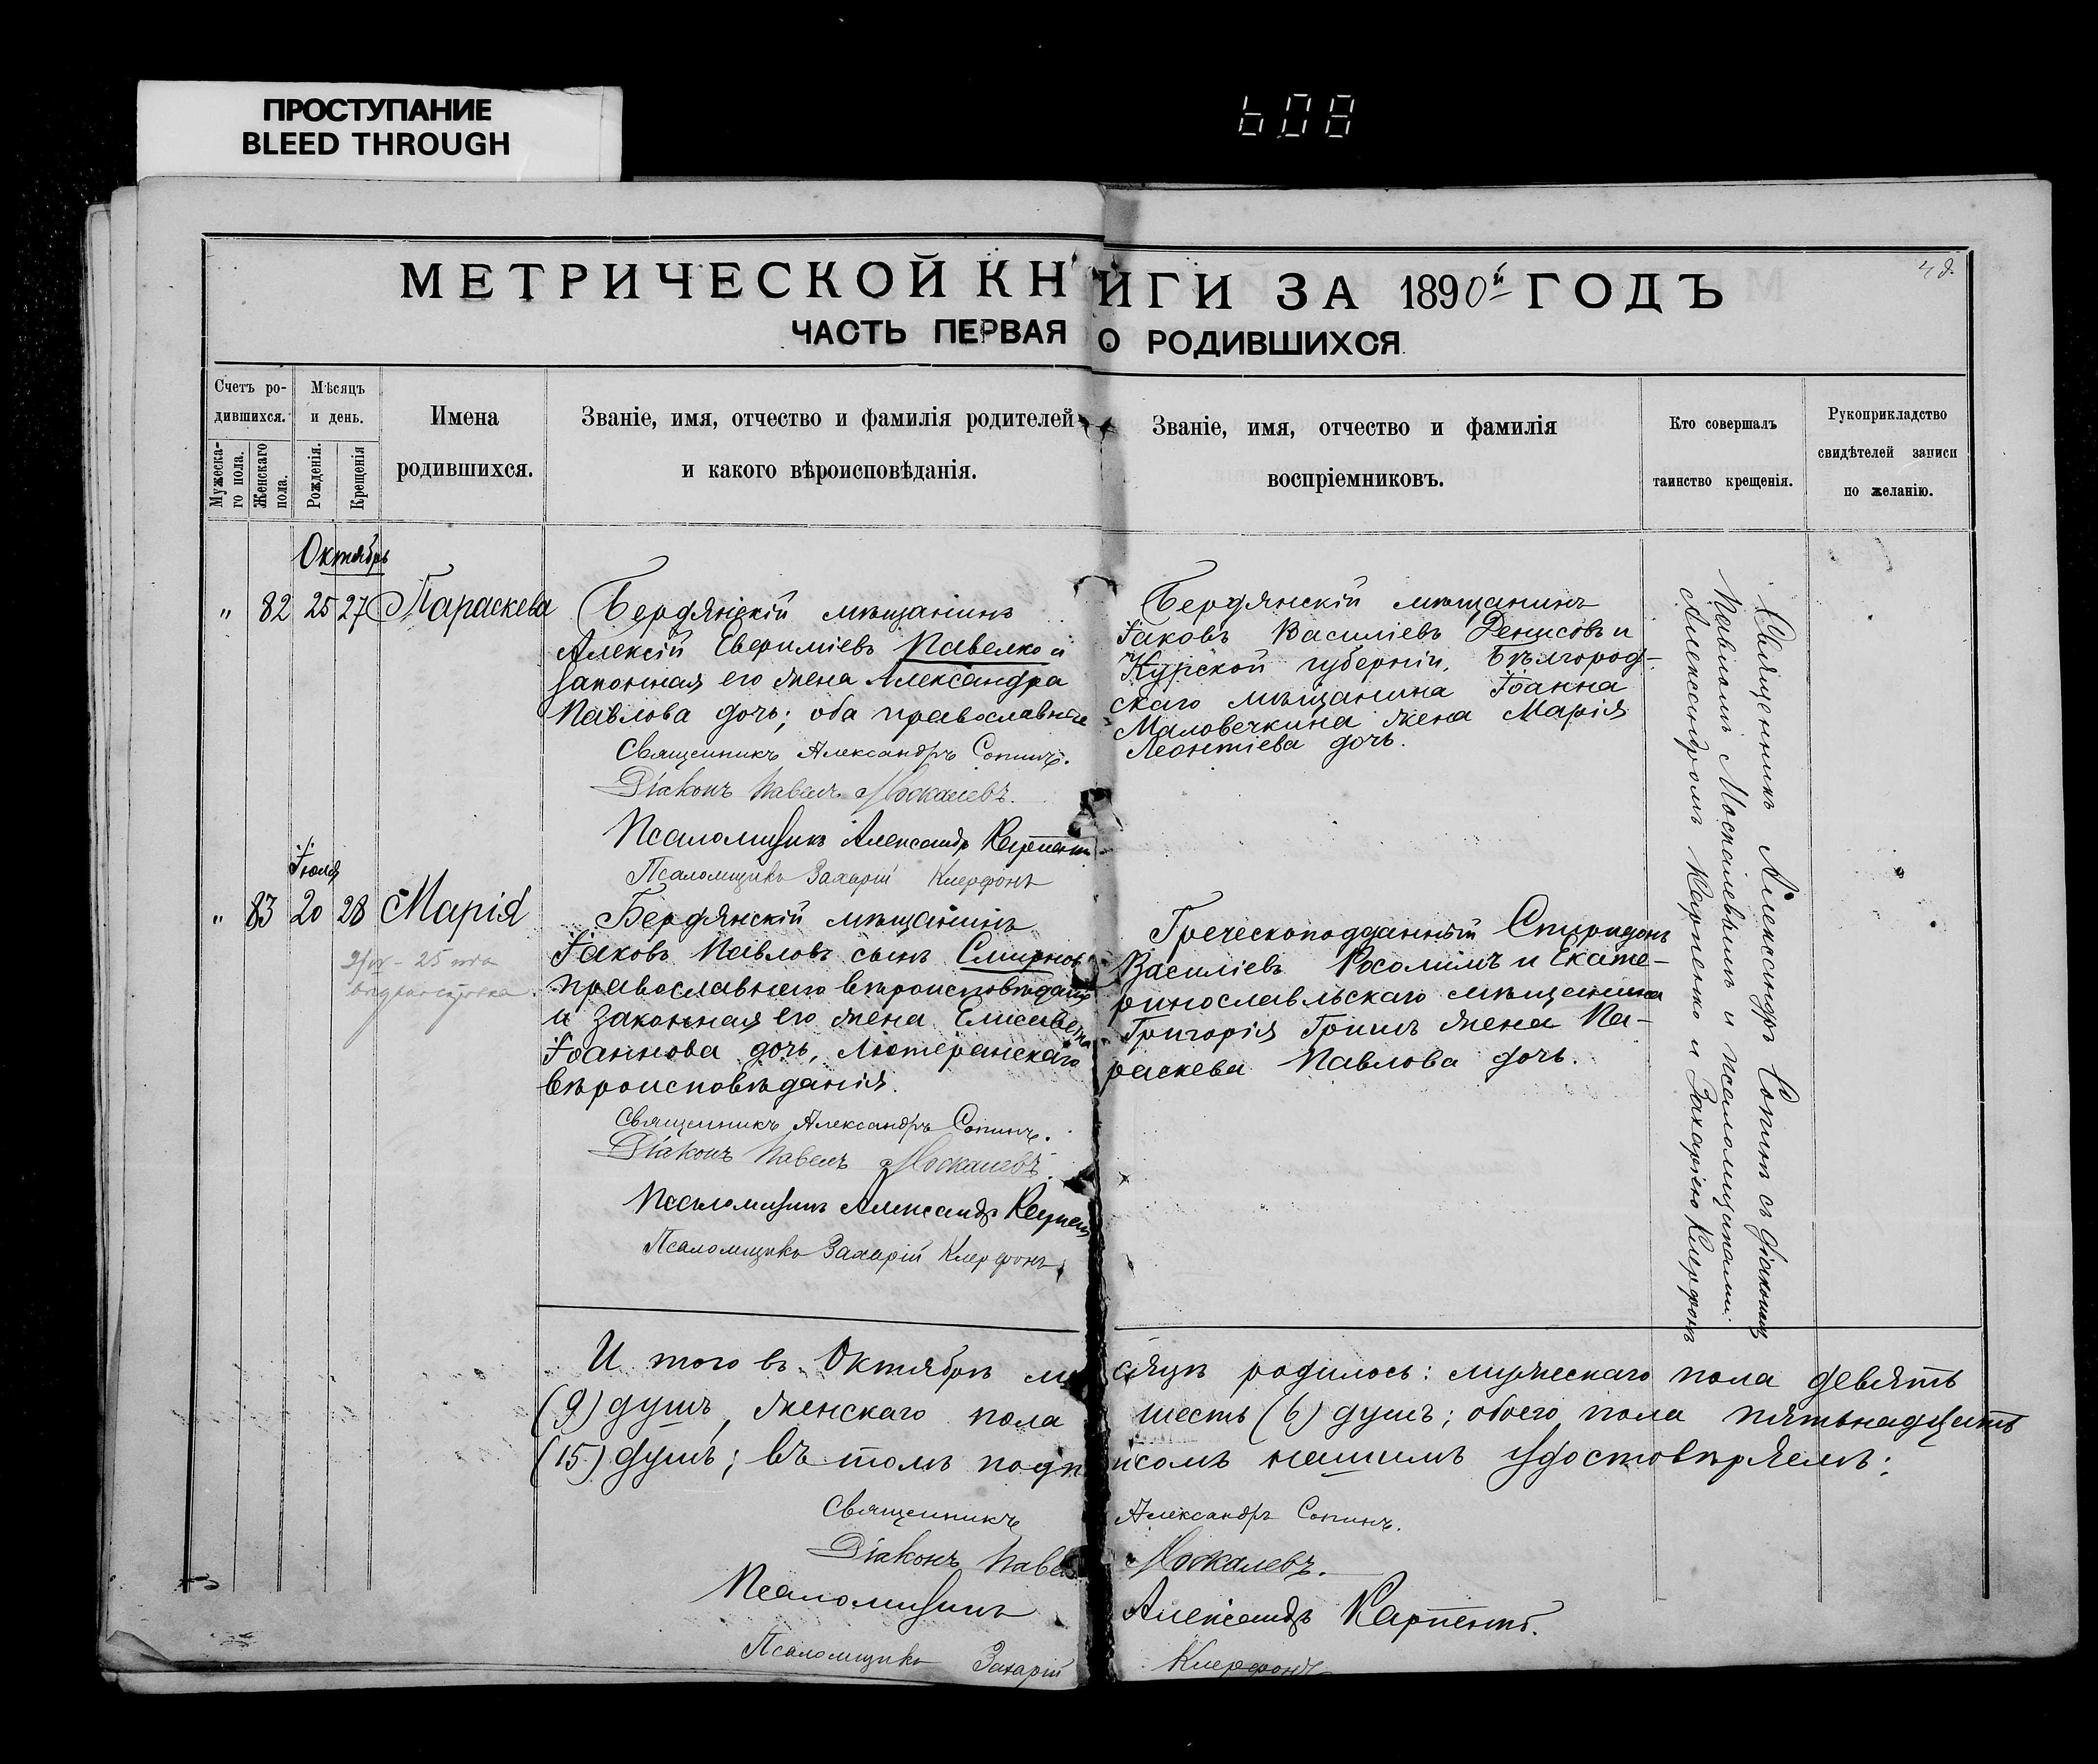 ПРОСТУПАНИЕ
BLEED THROUGH
608
МЕТРИЧЕСКОЙ КНИГИ ЗА 1890й ГОДЪ
ЧАСТЬ ПЕРВАЯ О РОДИВШИХСЯ.
Счетъ ро-
дившихся.
Мужеска-
го пола.
Женскаго
пола.
Мѣсяцъ
и день.
Рожденія.
Крещенія
Имена
родившихся.
Званіе, имя, отчество и фамилія родителей
и какого вѣроисповѣданія.
Званіе, имя, отчество и фамилія
воспріемниковъ.
Кто совершалъ
таинство крещенія.
Рукоприкладство
свидѣтелей записи
по желанію.
Октябрь
" 82 25 27 Параскева
Бердянскій мѣщанинъ
Алексій Павелко и
законная его жена Александра
Павлова дочь; оба православные
Священникъ Александръ Сопинъ.
Діаконъ Павелъ Москалевъ.
Псаломщикъ Александръ Карпенко
Псаломщикъ Захарій Клерфонъ
Бердянскій мѣщанинъ
Іаковъ Василіевъ Денисовъ и
Курской губерніи, Бѣлгород-
скаго мѣщанина Іоанна
Маловечкина жена Марія
Леонтіева дочь.
Священникъ Александръ Сопинъ съ діакономъ
Павломъ Москалевымъ и псаломщиками:
Александромъ Карпенко и Захаріею Клерфонъ
Іюля
" 83 20 28 Марія
Бердянскій мѣщанинъ
Іаковъ Павловъ сынъ Смирновъ
православнаго вѣроисповѣданія
и законная его жена Елисавета
Іоаннова дочь, лютеранскаго
вѣроисповѣданія.
Священникъ Александръ Сопинъ.
Діаконъ Павелъ Москалевъ.
Псаломщикъ Александръ Карпенко
Псаломщикъ Захарій Клерфонъ
Греческоподданный Спиридонъ
Василіевъ Росолимъ и Екате-
ринославльскаго мѣщанина
Григорія Гришъ жена Па-
раскева Павлова дочь.
Итого въ Октябрѣ мѣсяцѣ родилось: мужескаго пола девять
(9) душъ, женскаго пола шесть (6) душъ; обоего пола пятьнадцать
(15) душъ; въ томъ подписомъ нашимъ удостовѣряемъ:
Священникъ Александръ Сопинъ.
Діаконъ Павелъ Москалевъ.
Псаломщикъ Александръ Карпенко.
Псаломщикъ Захарій Клерфонъ